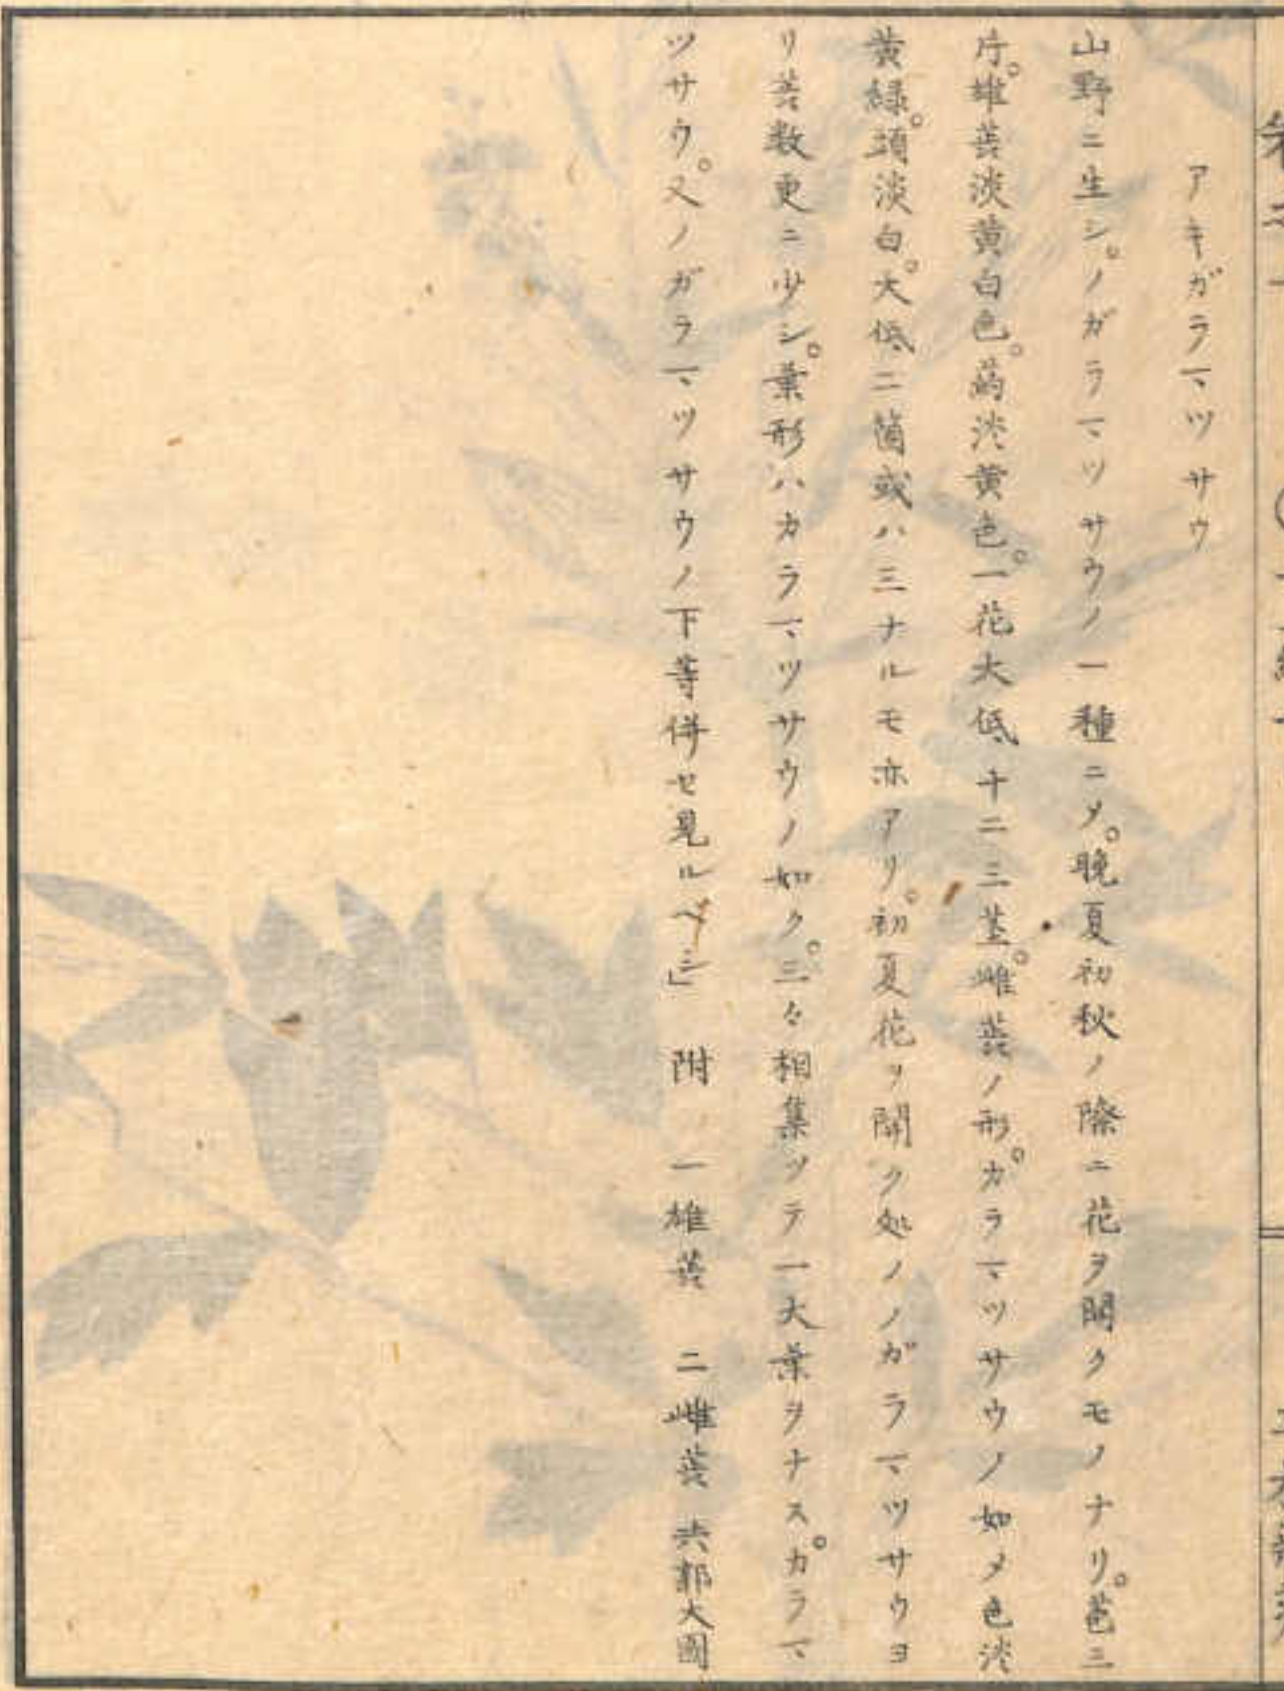 アキガラマツサウ
山野ニ生シ。ノガラマツサウノ一種ニメ。晩夏初秋ノ際ニ花ヲ開クモノナリ。苞三
片。雄蕋淡黄白色。葯淡黄色。一花大低十二三莖。雌蕋ノ形。カラマツサウノ如メ色淡
黄緑。頭淡白。大低二箇或ハ三ナルモ亦アリ。初夏花ヲ開ク処ノノガラマツサウヨ
リ蕋数更ニ少シ。葉形ハカラマツサウノ如ク。三々相集ツテ一大葉ヲナス。カラマ
ツサウ。又ノガラマツサウノ下等併セ見ルベシ」 附 一雄蕋 二雌蕋 共郭大圖